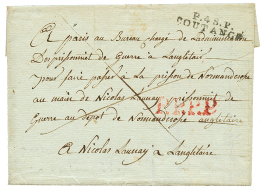 P.48.P.
COUTANCE
A paris au Bureau chargé de Ladministration
Des prisonniet de Guerre à Langletair
pour faire passer à La prison de Normanderose
au maire de Nicolas Launay prisonnier de
Guerre au depot de Normanderose anglitaire
P.P.P.P
A Nicolas Launay a Langlitaire